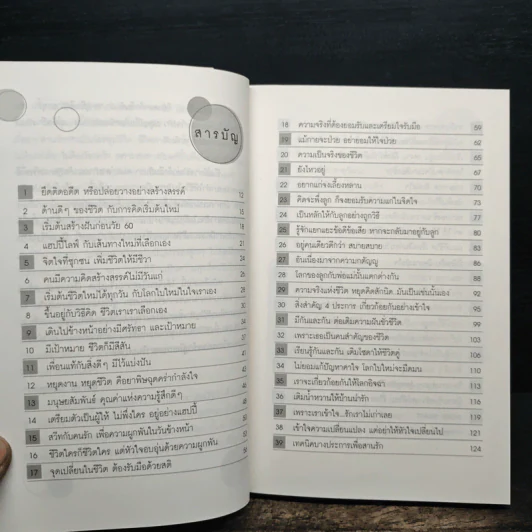 สารบัญ
1 ยึดติดอดีต หรือปล่อยวางอย่างสร้างสรรค์ 10
2 ด้านดีๆ ของชีวิต กับการคิดเริ่มต้นใหม่ 16
3 เริ่มต้นสร้างฝันก่อนวัย 60
4 แฮปปี้ไลฟ์ กับเส้นทางใหม่ที่เลือกเอง
5 จิตใจที่ชุกชน เพิ่มชีวิตให้มีชีวา
6 คนมีความคิดสร้างสรรค์ไม่มีวันแก่
7 เริ่มต้นชีวิตใหม่ได้ทุกวัน กับโลกใบใหม่ในใจเราเอง
8 ขึ้นอยู่กับวิธีคิด ชีวิตเราเราเลือกเอง
9 เดินไปข้างหน้าอย่างมีศรัทธา และเป้าหมาย
10 มีเป้าหมาย ชีวิตก็มีสีสัน
11 เพื่อนแท้กับสิ่งดีๆ มีไว้แบ่งปัน
12 หยุดงาน หยุดชีวิต คือยาพิษฉุดคร่ากำลังใจ
13 มนุษยสัมพันธ์ คุณค่าแห่งความรู้สึกดีๆ
14 เตรียมตัวเป็นผู้ให้ ไม่พึ่งใคร อยู่อย่างแฮปปี้
15 สวีทกับคนรัก เพื่อความผูกพันในวันข้างหน้า
16 ชีวิตใครก็ชีวิตใคร แต่หัวใจอบอุ่นด้วยความผูกพัน
17 จุดเปลี่ยนในชีวิต ต้องรับมือด้วยสติ
18 ความจริงที่ต้องยอมรับและเตรียมใจรับมือ 59
19 แม้กายจะป่วย อย่ายอมให้ใจป่วย 62
20 ความเป็นจริงของชีวิต 65
21 ยังไหวอยู่ 67
22 อยากแกงจะเลี้ยงหลาน 70
23 คิดจะพึ่งลูก ก็จงยอมรับความแก่ในจิตใจ 73
24 เป็นหลักให้กับลูกอย่างถูกวิธี 77
25 รู้จักแยกแยะข้อดีข้อเสีย หากจะกลับมาอยู่กับลูก 80
26 อยู่คนเดียวดีกว่า สบายสบาย 83
27 อันเนื่องมาจากความกตัญญู 86
28 โลกของลูกกับพ่อแม่นั้นแตกต่างกัน 88
29 ความจริงแห่งชีวิต หยุดคิดสักนิด มันเป็นเช่นนั้นเอง 92
30 สิ่งสำคัญ 4 ประการ เกี่ยวก้อยกันอย่างเข้าใจ 95
31 มีกันและกัน ต่อเติมความฝันข้างชีวิต 99
32 เพราะเธอเป็นคนสำคัญของชีวิต 103
33 เรียนรู้กันและกัน เติมโชสาใจชีวิตคู่ 106
34 ไม่ยอมแก้ปัญหาคาใจ โลกใบใหม่จะมืดมน 109
35 เราจะเกี่ยวก้อยกันให้โลกอิจฉา 113
36 เติมน้ำหวานให้บ้านน่ารัก 116
37 เพราะเราเข้าใจ...รักเราไม่เก่าเลย 119
38 เข้าใจความเปลี่ยนแปลง แต่อย่าให้หัวใจเปลี่ยนไป 121
39 เทคนิคบางประการเพื่อสานรัก 124